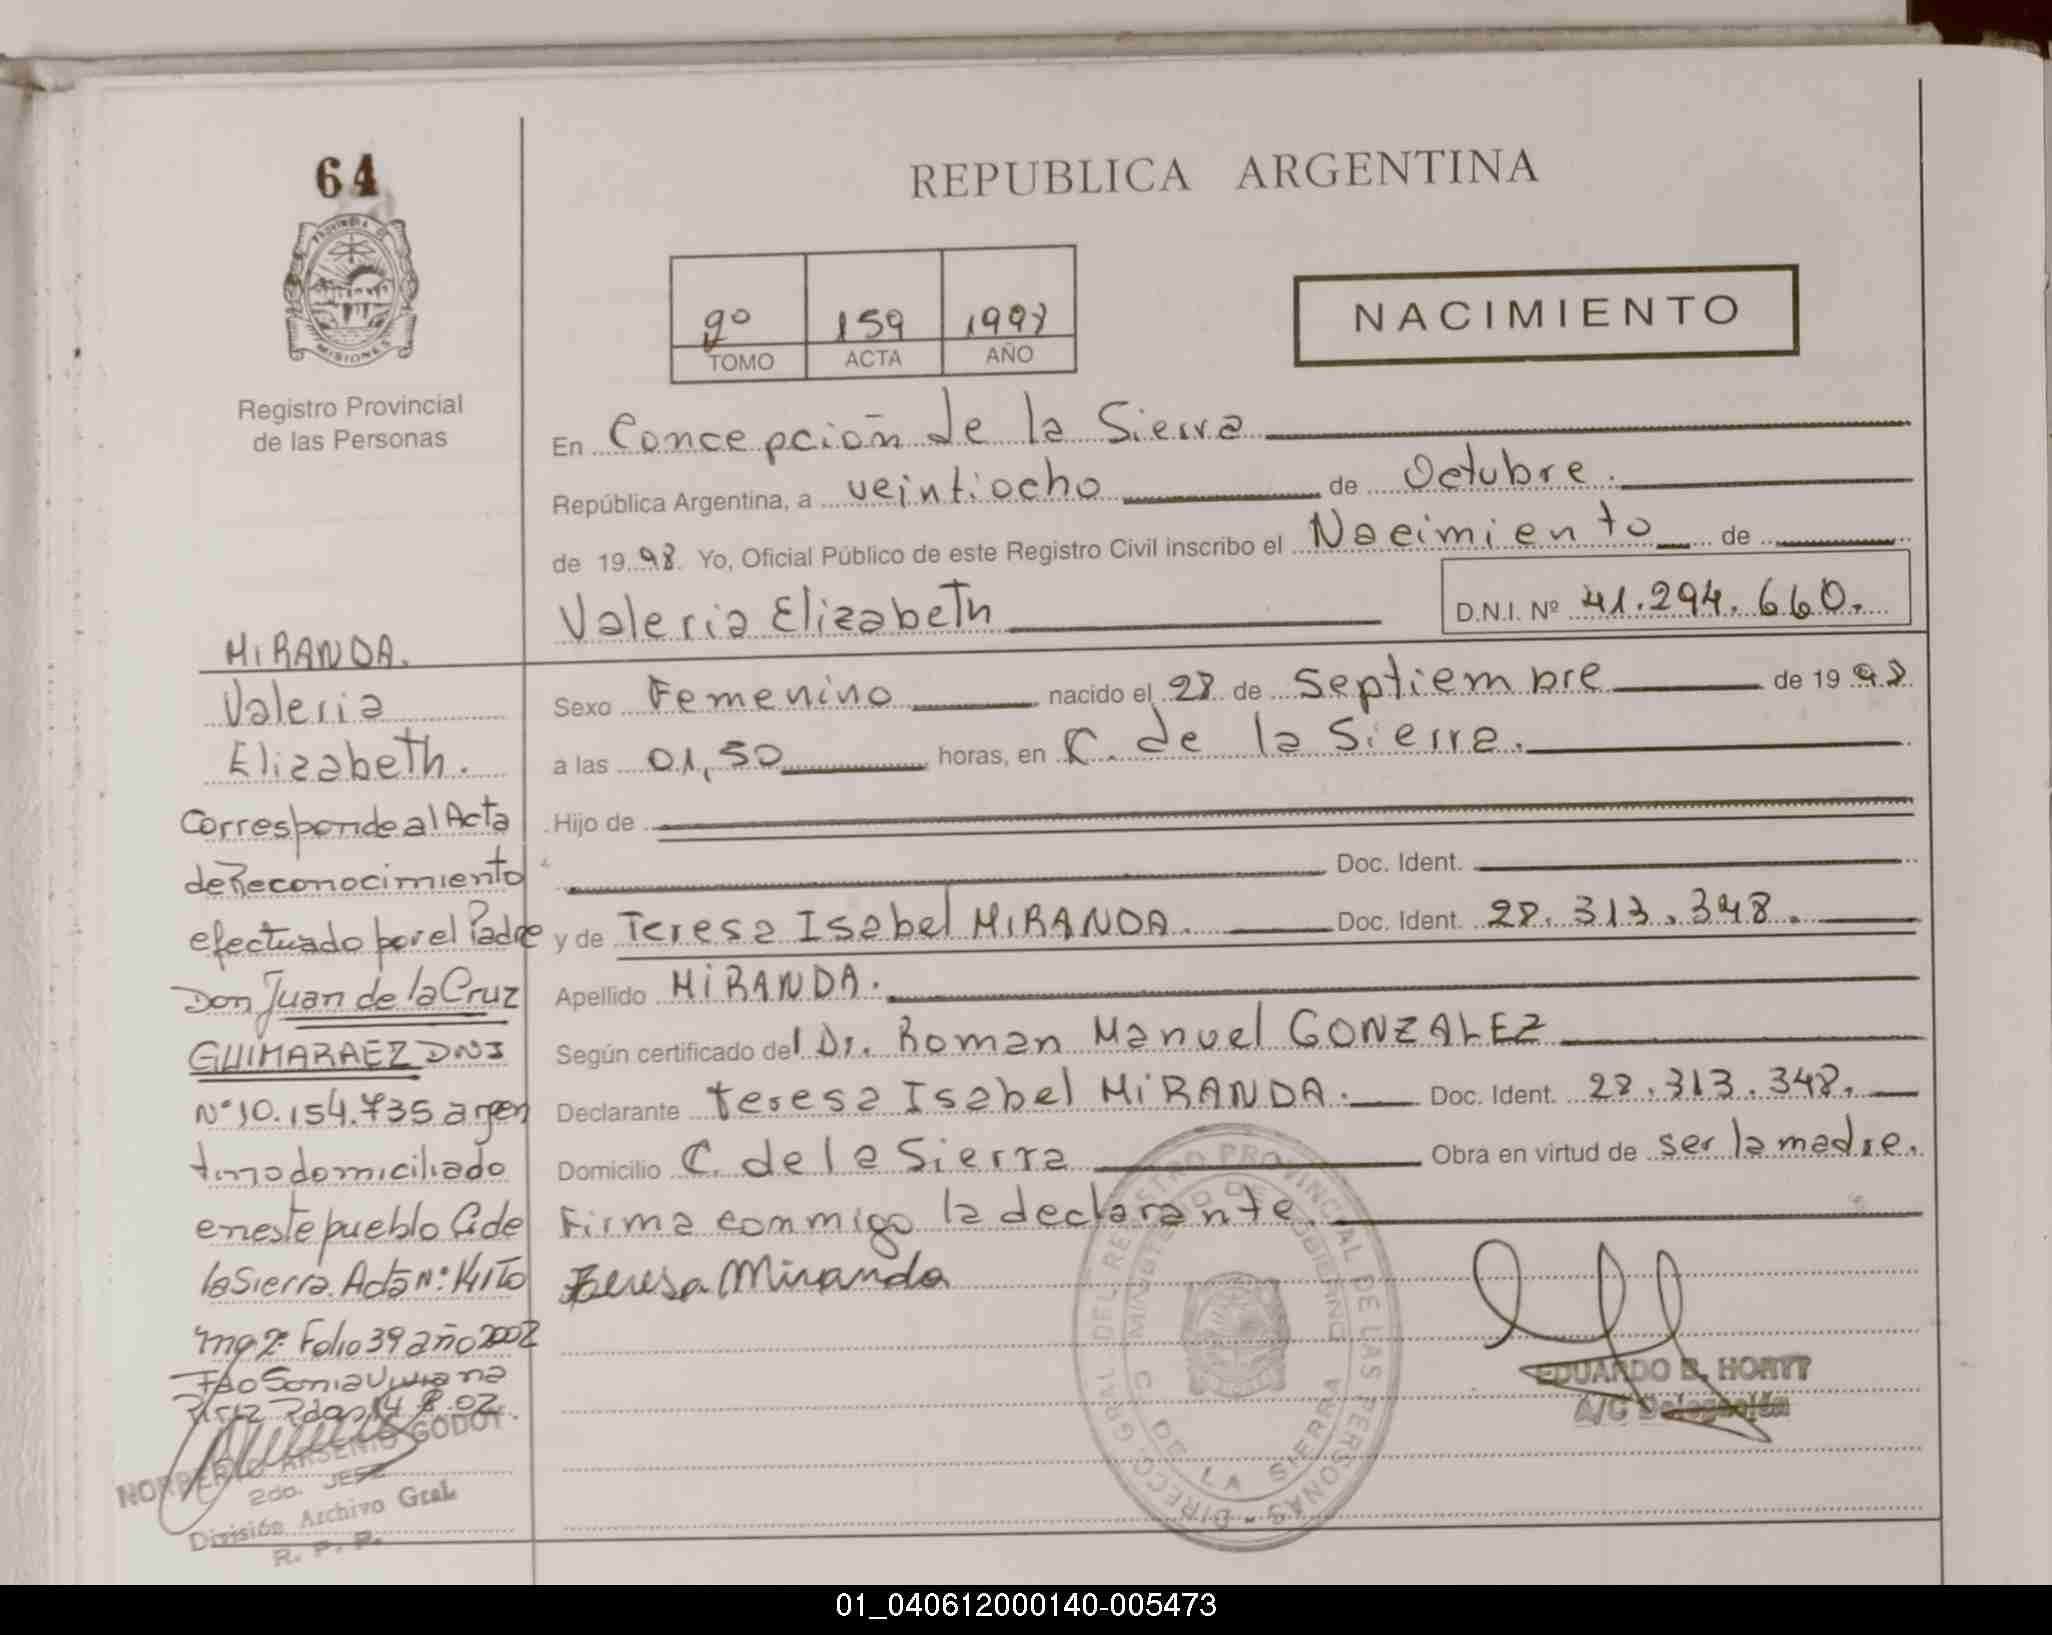 64
PROVINCIA DE
MISIONES
Registro Provincial
de las Personas
REPUBLICA ARGENTINA
2º 159 1998
TOMO ACTA AÑO
NACIMIENTO
En Concepción de la Sierra
República Argentina, a veintiocho de Octubre.
de 1998. Yo, Oficial Público de este Registro Civil inscribo el Nacimiento de
Valeria Elizabeth D.N.I. Nº 41.294.660.
Sexo Femenino nacido el 28 de Septiembre de 1998
a las 01,50 horas, en C. de la Sierra.
Hijo de
Doc. Ident.
y de Teresa Isabel MIRANDA. Doc. Ident. 28.313.348.
Apellido MIRANDA.
Según certificado del Dr. Roman Manuel GONZALEZ
Declarante Teresa Isabel MIRANDA. Doc. Ident. 28.313.348.
Domicilio C. de la Sierra Obra en virtud de ser la madre.
Firma conmigo la declarante.
Teresa Miranda
EDUARDO B.
A/C Delegación
DIRECC. GRAL. DEL REGISTRO PROVINCIAL DE LAS PERSONAS
MINISTERIO DE GOBIERNO
C. DE LA SIERRA
MIRANDA.
Valeria
Elizabeth.
Corresponde al Acta
de Reconocimiento
efectuado por el Padre
Don Juan de la Cruz
GUIMARAEZ DNI
Nº 10.154.735 argen
tino domiciliado
en este pueblo C. de
la Sierra. Acta Nº:
Folio 39 año 2002
Sonia Viviana
NORBERTO ARSENIO GODOY
2do. JEFE
División Archivo Gral.
R. P. P.
01_040612000140-005473